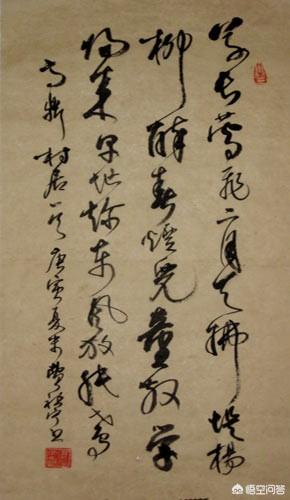 草长莺飞二月天拂堤楊
柳醉春煙兒童散学
归来早忙趁东风放纸鸢
高鼎 村居一首 庚寅夏末
悟空问答